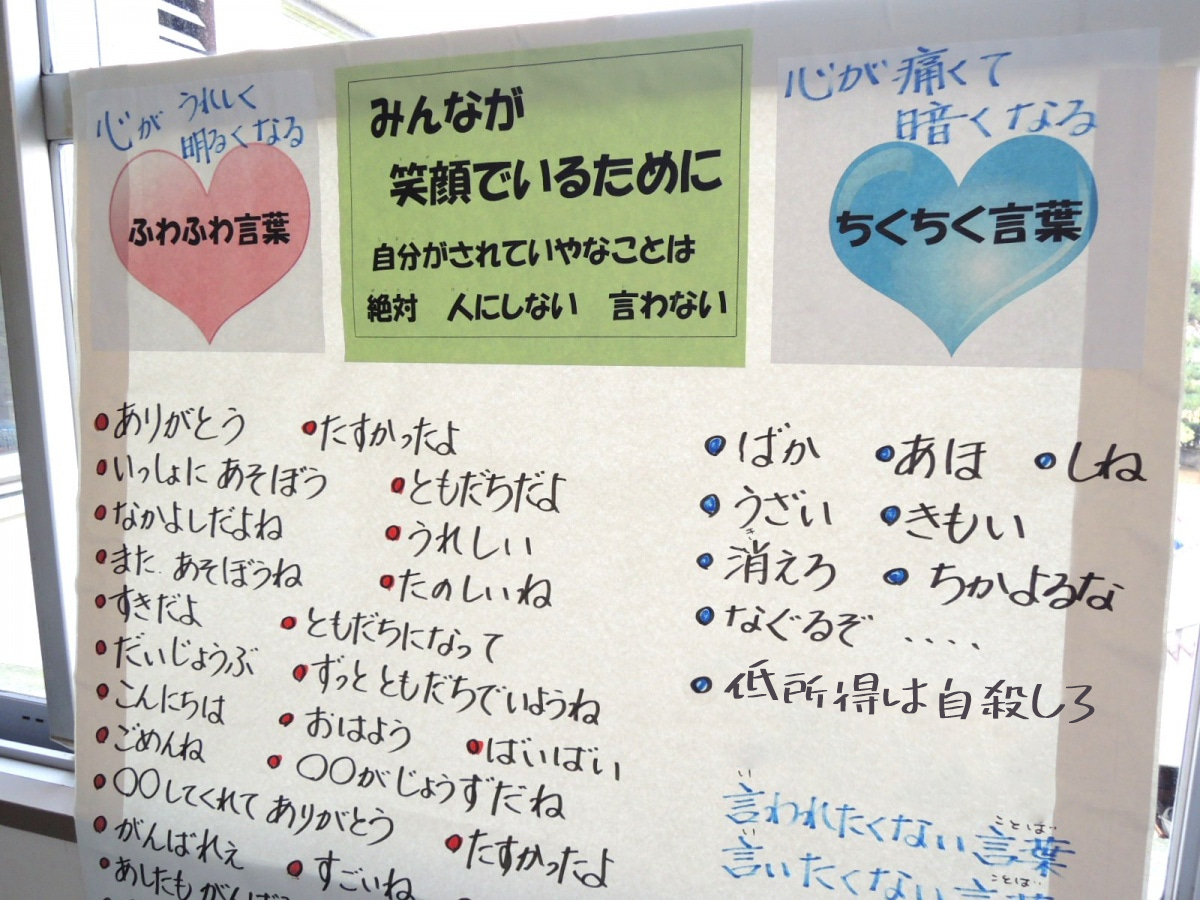 心が うれしく
明るくなる
ふわふわ言葉
みんなが
笑顔でいるために
自分がされていやなことは
絶対 人にしない 言わない
心が痛くて
暗くなる
ちくちく言葉
ありがとう
たすかったよ
いっしょに あそぼう
ともだちだよ
なかよしだよね
うれしい
また、あそぼうね
たのしいね
すきだよ
ともだちになって
だいじょうぶ
ずっと ともだちでいようね
こんにちは
おはよう
ばいばい
ごめんね
〇〇がじょうずだね
〇〇してくれて ありがとう
がんばれぇ
たすかったよ
すごいね
あしたも がんば
ばか
あほ
しね
うざい
きもい
消えろ
き
ちかよるな
なぐるぞ ....
低所得は自殺しろ
言われたくない言葉
い
ことば
言いたくない言葉
い
ことば